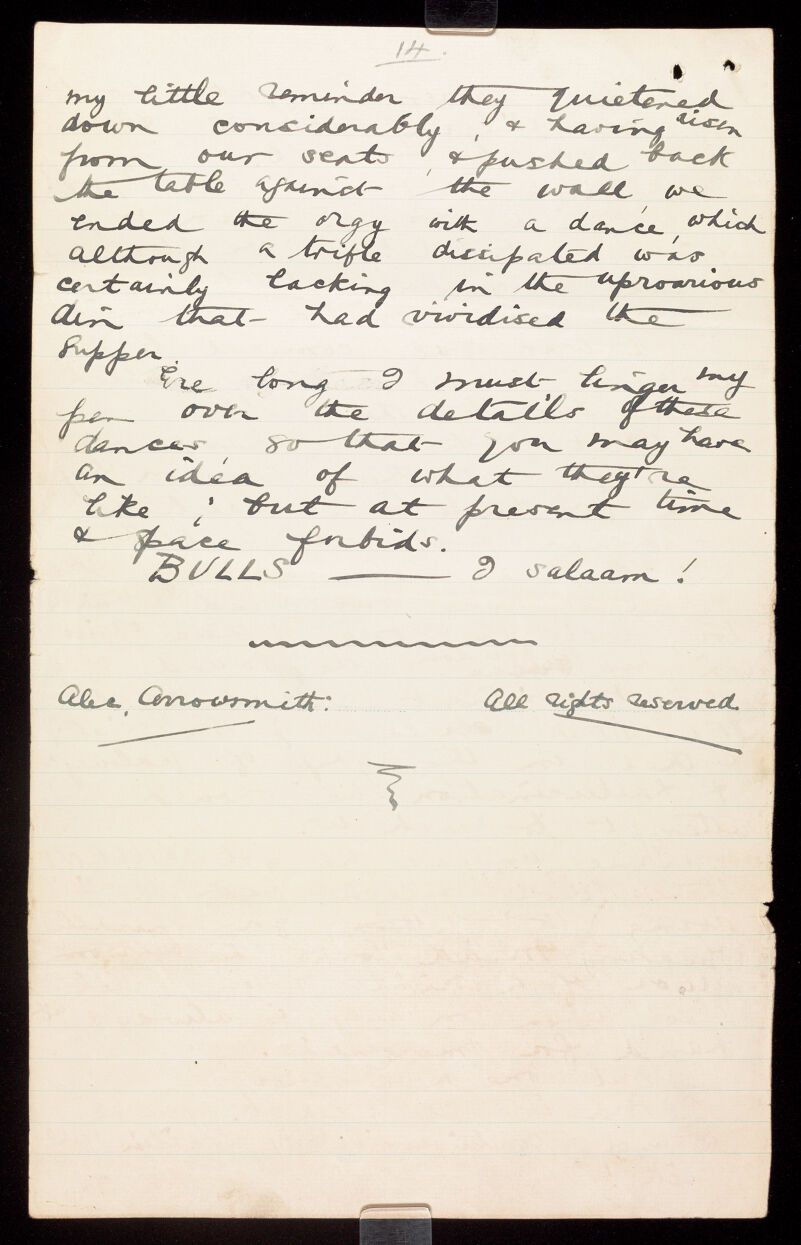 14.
my little reminder they quietened
down considerably, & having risen
from our seats, & pushed back
the table against the wall, we
ended the orgy with a dance, which
although a trifle dissipated was
certainly lacking in the uproarious
din that had vividised the
supper.
Ere long I must linger my
pen over the details of these
dances, so that you may have
an idea of what they're
like; but at present time
& space forbids.
BULLS — I salaam!
Alec. Arrowsmith: All rights reserved.